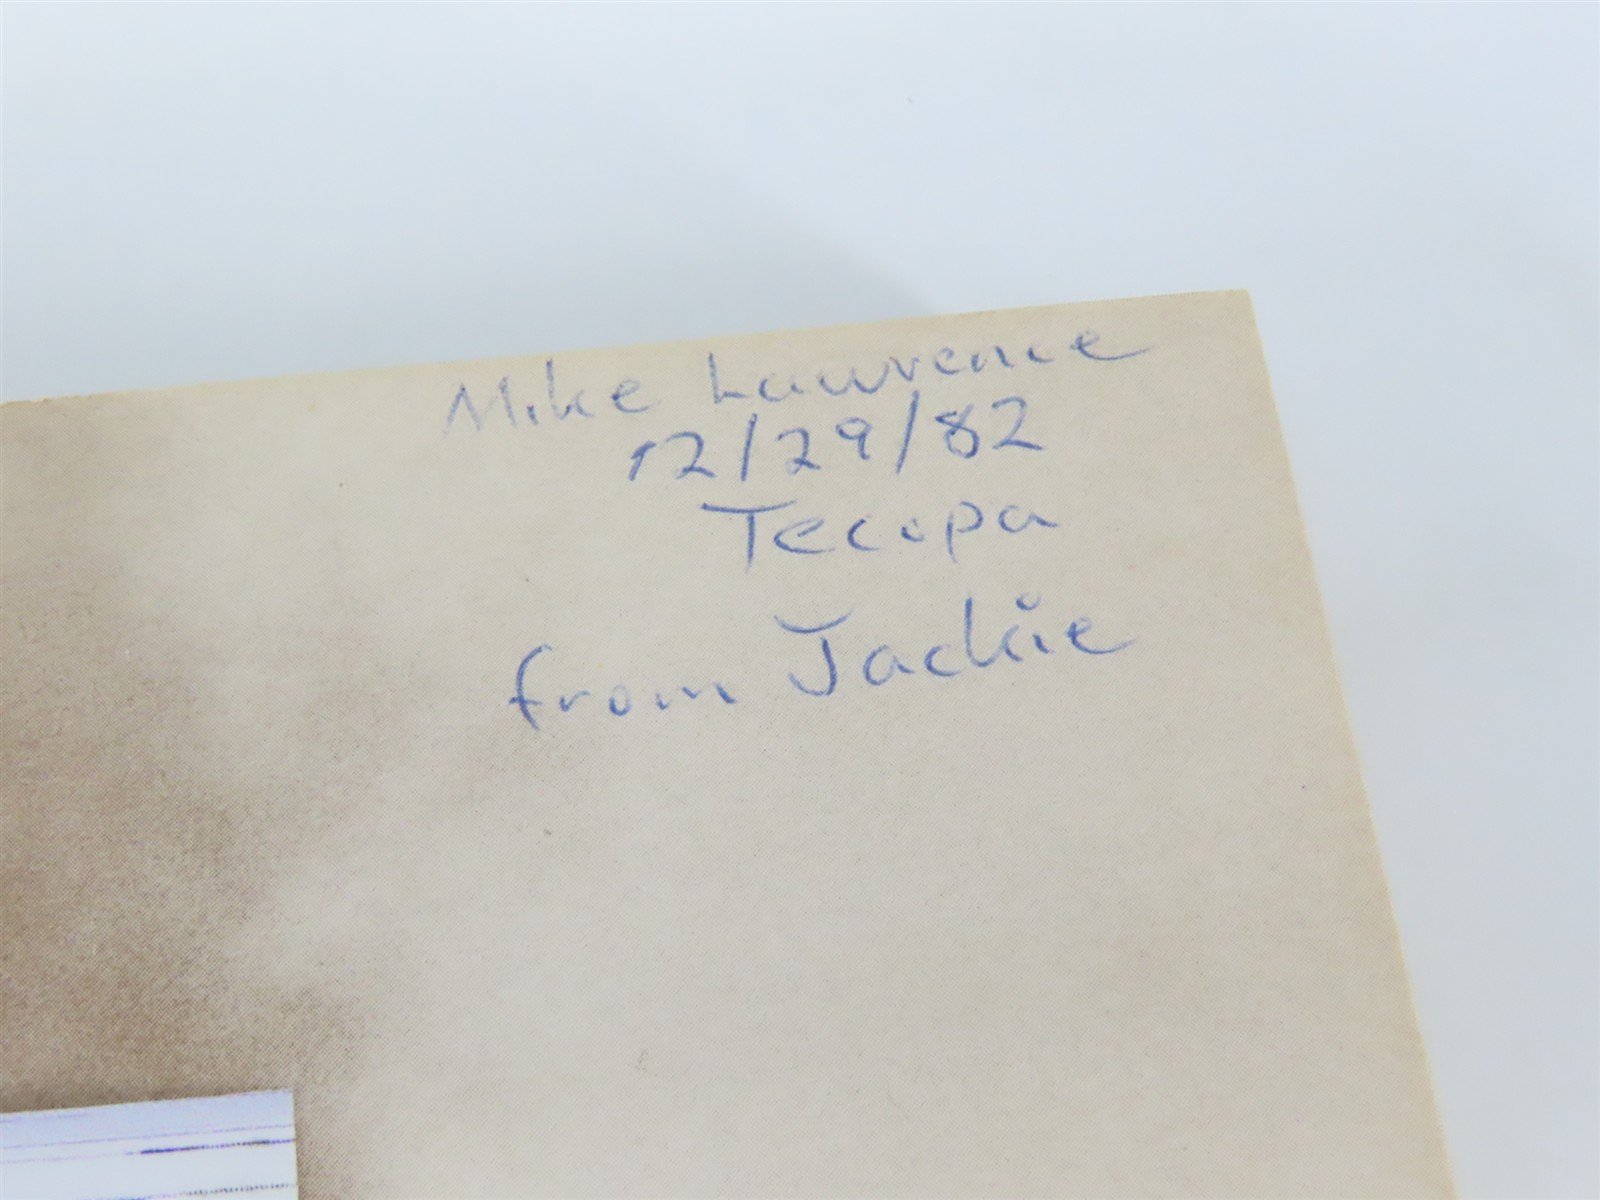 Mike Lawrence
12/29/82
Tecopa
from Jackie